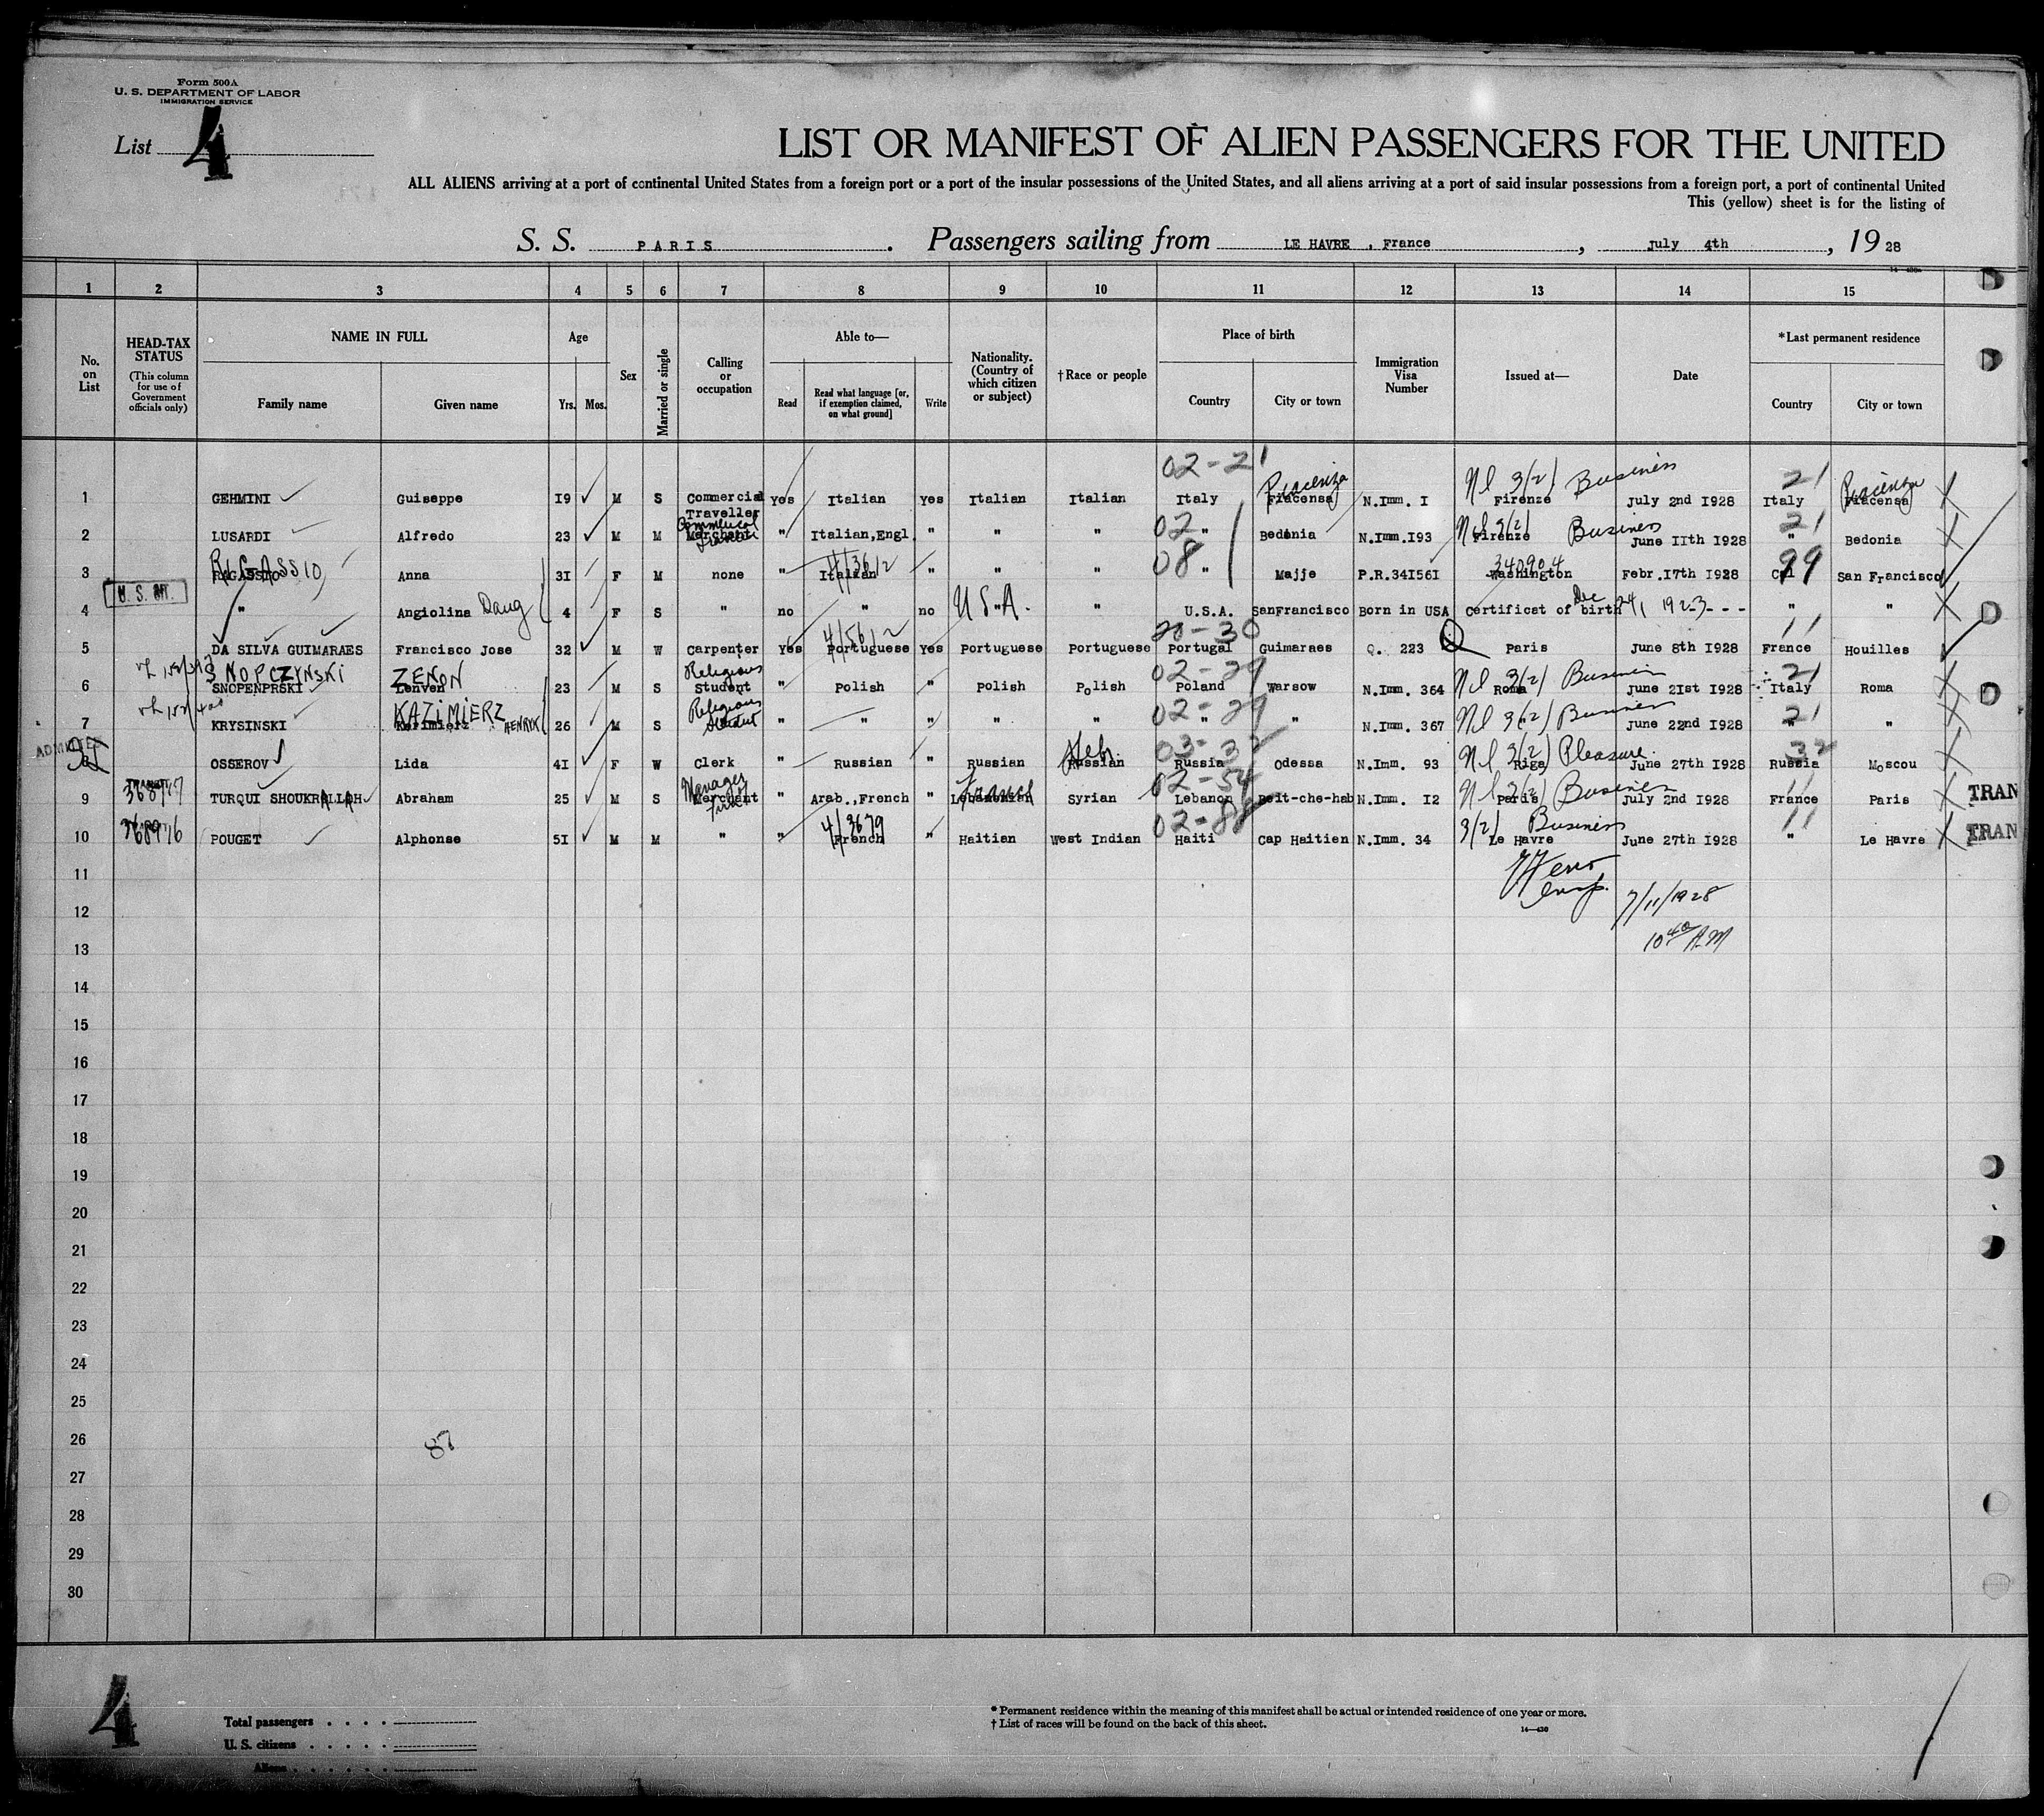 Form 500A
U. S. DEPARTMENT OF LABOR
IMMIGRATION SERVICE
List 4
LIST OR MANIFEST OF ALIEN PASSENGERS FOR THE UNITED
ALL ALIENS arriving at a port of continental United States from a foreign port or a port of the insular possessions of the United States, and all aliens arriving at a port of said insular possessions from a foreign port, a port of continental United
This (yellow) sheet is for the listing of
S. S. PARIS . Passengers sailing from LE HAVRE , France , July 4th , 19 28
1 2 3 4 5 6 7 8 9 10 11 12 13 14 15
No. on List
HEAD-TAX STATUS
(This column for use of Government officials only)
NAME IN FULL
Family name Given name
Age
Yrs. Mos.
Sex
Married or single
Calling or occupation
Able to—
Read Read what language [or, if exemption claimed, on what ground] Write
Nationality. (Country of which citizen or subject)
†Race or people
Place of birth
Country City or town
Immigration Visa Number
Issued at—
Date
*Last permanent residence
Country City or town
02-21 Piacenza Nl 3(2) Business 21 Piacenza
1 GEHMINI Guiseppe 19 M S Commercial Traveller Yes Italian Yes Italian Italian Italy Piacensa N.Imm. I Firenze July 2nd 1928 Italy Piacensa
Commercial 02 Nl 3(2) Business 21
2 LUSARDI Alfredo 23 M M Merchant " Italian,Engl. " " " " Bedonia N.Imm.193 Firenze June 11th 1928 " Bedonia
RIGASSIO 4/3612 08 340904 99
3 Anna 31 F M none " Italian " " " " Majje P.R.341561 Washington Febr.17th 1928 Cal San Francisco
U. S. BT.
4 " Angiolina Daug 4 F S " no " no U.S.A. " U.S.A. SanFrancisco Born in USA Certificat of birth Dec 24, 1923---  " "
4/5612 30 11
5 DA SILVA GUIMARAES Francisco Jose 32 M W Carpenter Yes Portuguese Yes Portuguese Portuguese Portugal Guimaraes Q. 223 Paris June 8th 1928 France Houilles
SNOPCZYNSKI ZENON Religious 02-29 Nl 3(2) Business 21
6 SNOPENPRSKI Zenven 23 M S Student " Polish " Polish Polish Poland Warsow N.Imm. 364 Roma June 21st 1928 Italy Roma
KAZIMIERZ HENRYK Religious Student 02-29 Nl 3(2) Business 21
7 KRYSINSKI Kazimierz 26 M S " " " " " " " N.Imm. 367 " June 22nd 1928 " "
ADMITTED
Heb. 03-32 Nl 3(2) Pleasure 32
8 OSSEROV Lida 41 F W Clerk " Russian " Russian Russian Russia Odessa N.Imm. 93 Riga June 27th 1928 Russia Moscou
368977 Manager Firm France 02-54 Nl 3(2) Business 11
9 TURQUI SHOUKRALLAH Abraham 25 M S Merchant " Arab.,French " Lebanonian Syrian Lebanon Beit-che-hab N.Imm. 12 Paris July 2nd 1928 France Paris TRAN
368976 4/3679 02-88 3(2) Business 11
10 POUGET Alphonse 51 M M " " French " Haitian West Indian Haiti Cap Haitien N.Imm. 34 Le Havre June 27th 1928 " Le Havre TRAN
11
Insp.
12 7/11/1928
13 10 40 AM
14
15
16
17
18
19
20
21
22
23
24
25
26 87
27
28
29
30
4
Total passengers
U. S. citizens
Aliens
* Permanent residence within the meaning of this manifest shall be actual or intended residence of one year or more.
† List of races will be found on the back of this sheet.
14—430